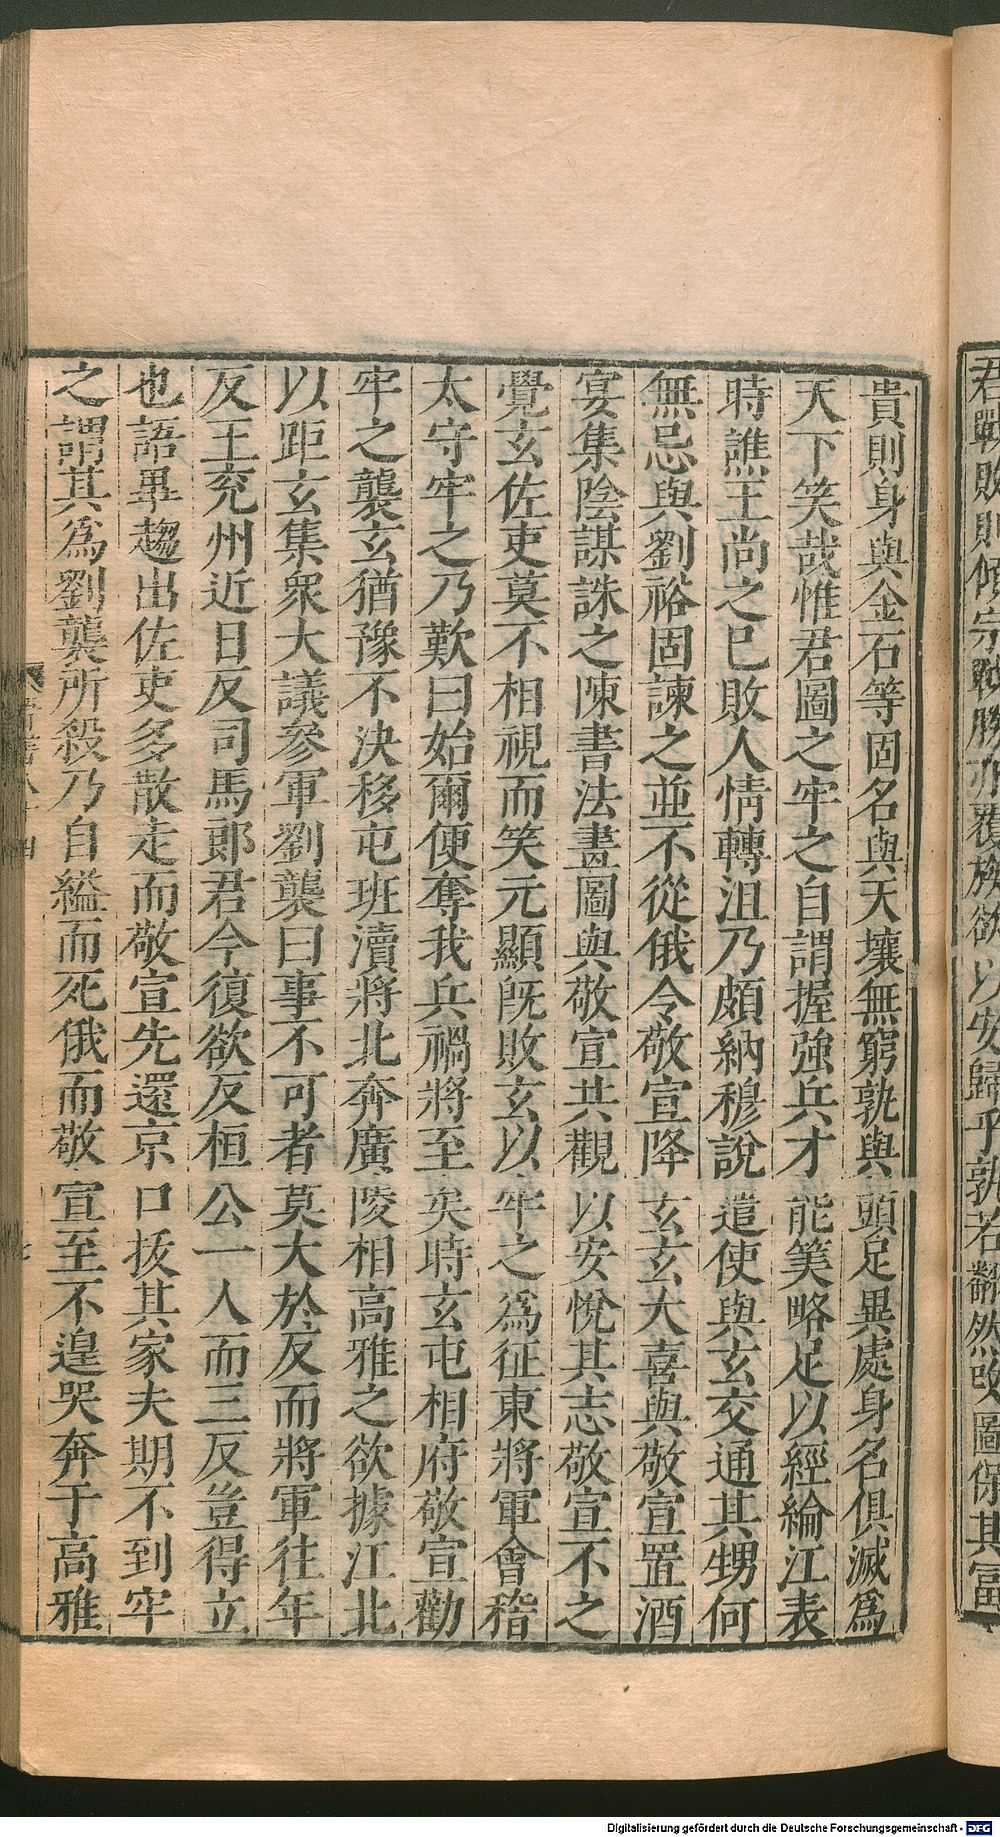 君戰敗則傾宗戰勝亦覆族欲以安歸乎孰若翻然改圖保其富
貴則身與金石等固名與天壤無窮孰與頭足異處身名俱滅爲
天下笑哉惟君圖之牢之自謂握強兵才能筭略足以經綸江表
時譙王尚之已敗人情轉沮乃頗納穆說遣使與玄交通其甥何
無忌與劉裕固諫之並不從俄令敬宣降玄玄大喜與敬宣置酒
宴集陰謀誅之陳書法畫圖與敬宣共觀以安悅其志敬宣不之
覺玄佐吏莫不相視而笑元顯旣敗玄以牢之爲征東將軍會稽
太守牢之乃歎曰始爾便奪我兵禍將至矣時玄屯相府敬宣勸
牢之襲玄猶豫不決移屯班瀆將北奔廣陵相高雅之欲據江北
以距玄集衆大議參軍劉襲曰事不可者莫大於反而將軍往年
反王兖州近日反司馬郎君今復欲反桓公一人而三反豈得立
也語畢趨出佐吏多散走而敬宣先還京口拔其家夫期不到牢
之謂其爲劉襲所殺乃自縊而死俄而敬宣至不遑哭奔于高雅
Digitalisierung gefördert durch die Deutsche Forschungsgemeinschaft - DFG